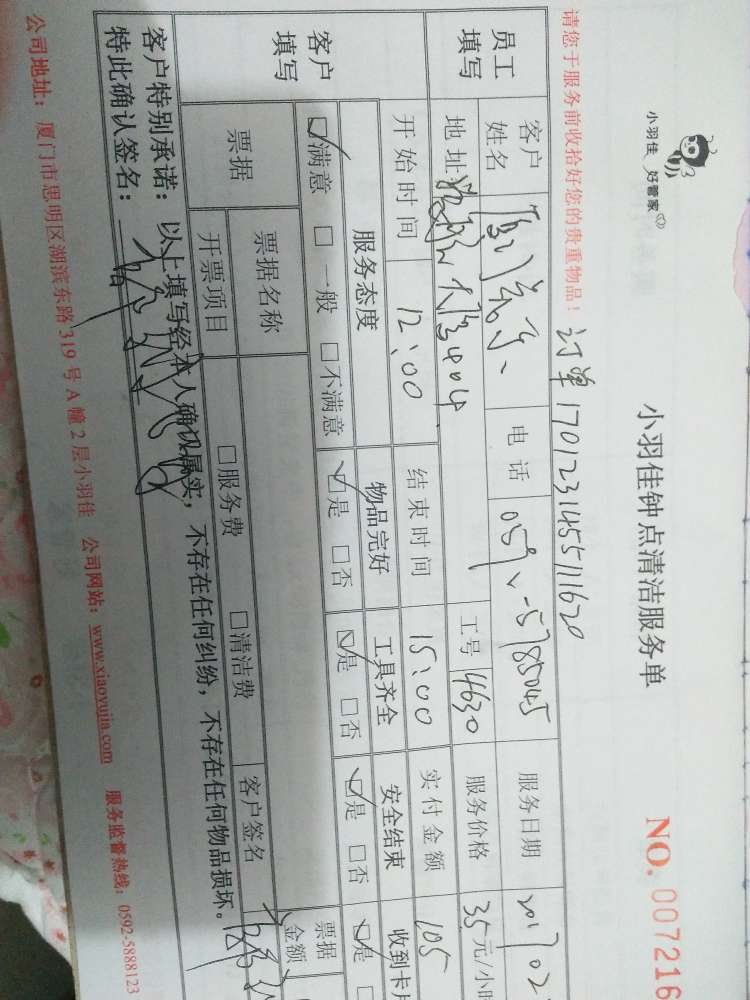 小羽佳 好管家
小羽佳钟点清洁服务单
NO. 007216
请您于服务前收拾好您的贵重物品！ 订单170123145511620
员工填写 客户姓名 电话 服务日期
地址 大厦 工号 4630 服务价格 35元/小时
开始时间 12:00 结束时间 15:00 实付金额 105
客户填写 服务态度 物品完好 工具齐全 安全结束 收到卡
☑满意 □一般 □不满意 ☑是 □否 ☑是 □否 ☑是 □否 ☑是
票据 票据名称 票据金额
开票项目 □服务费 □清洁费 客户签名
客户特别承诺：以上填写经本人确认属实，不存在任何纠纷，不存在任何物品损坏。
特此确认签名：
公司地址：厦门市思明区湖滨东路319号A幢2层小羽佳 公司网站：www.xiaoyujia.com 服务监督热线：0592-5888123